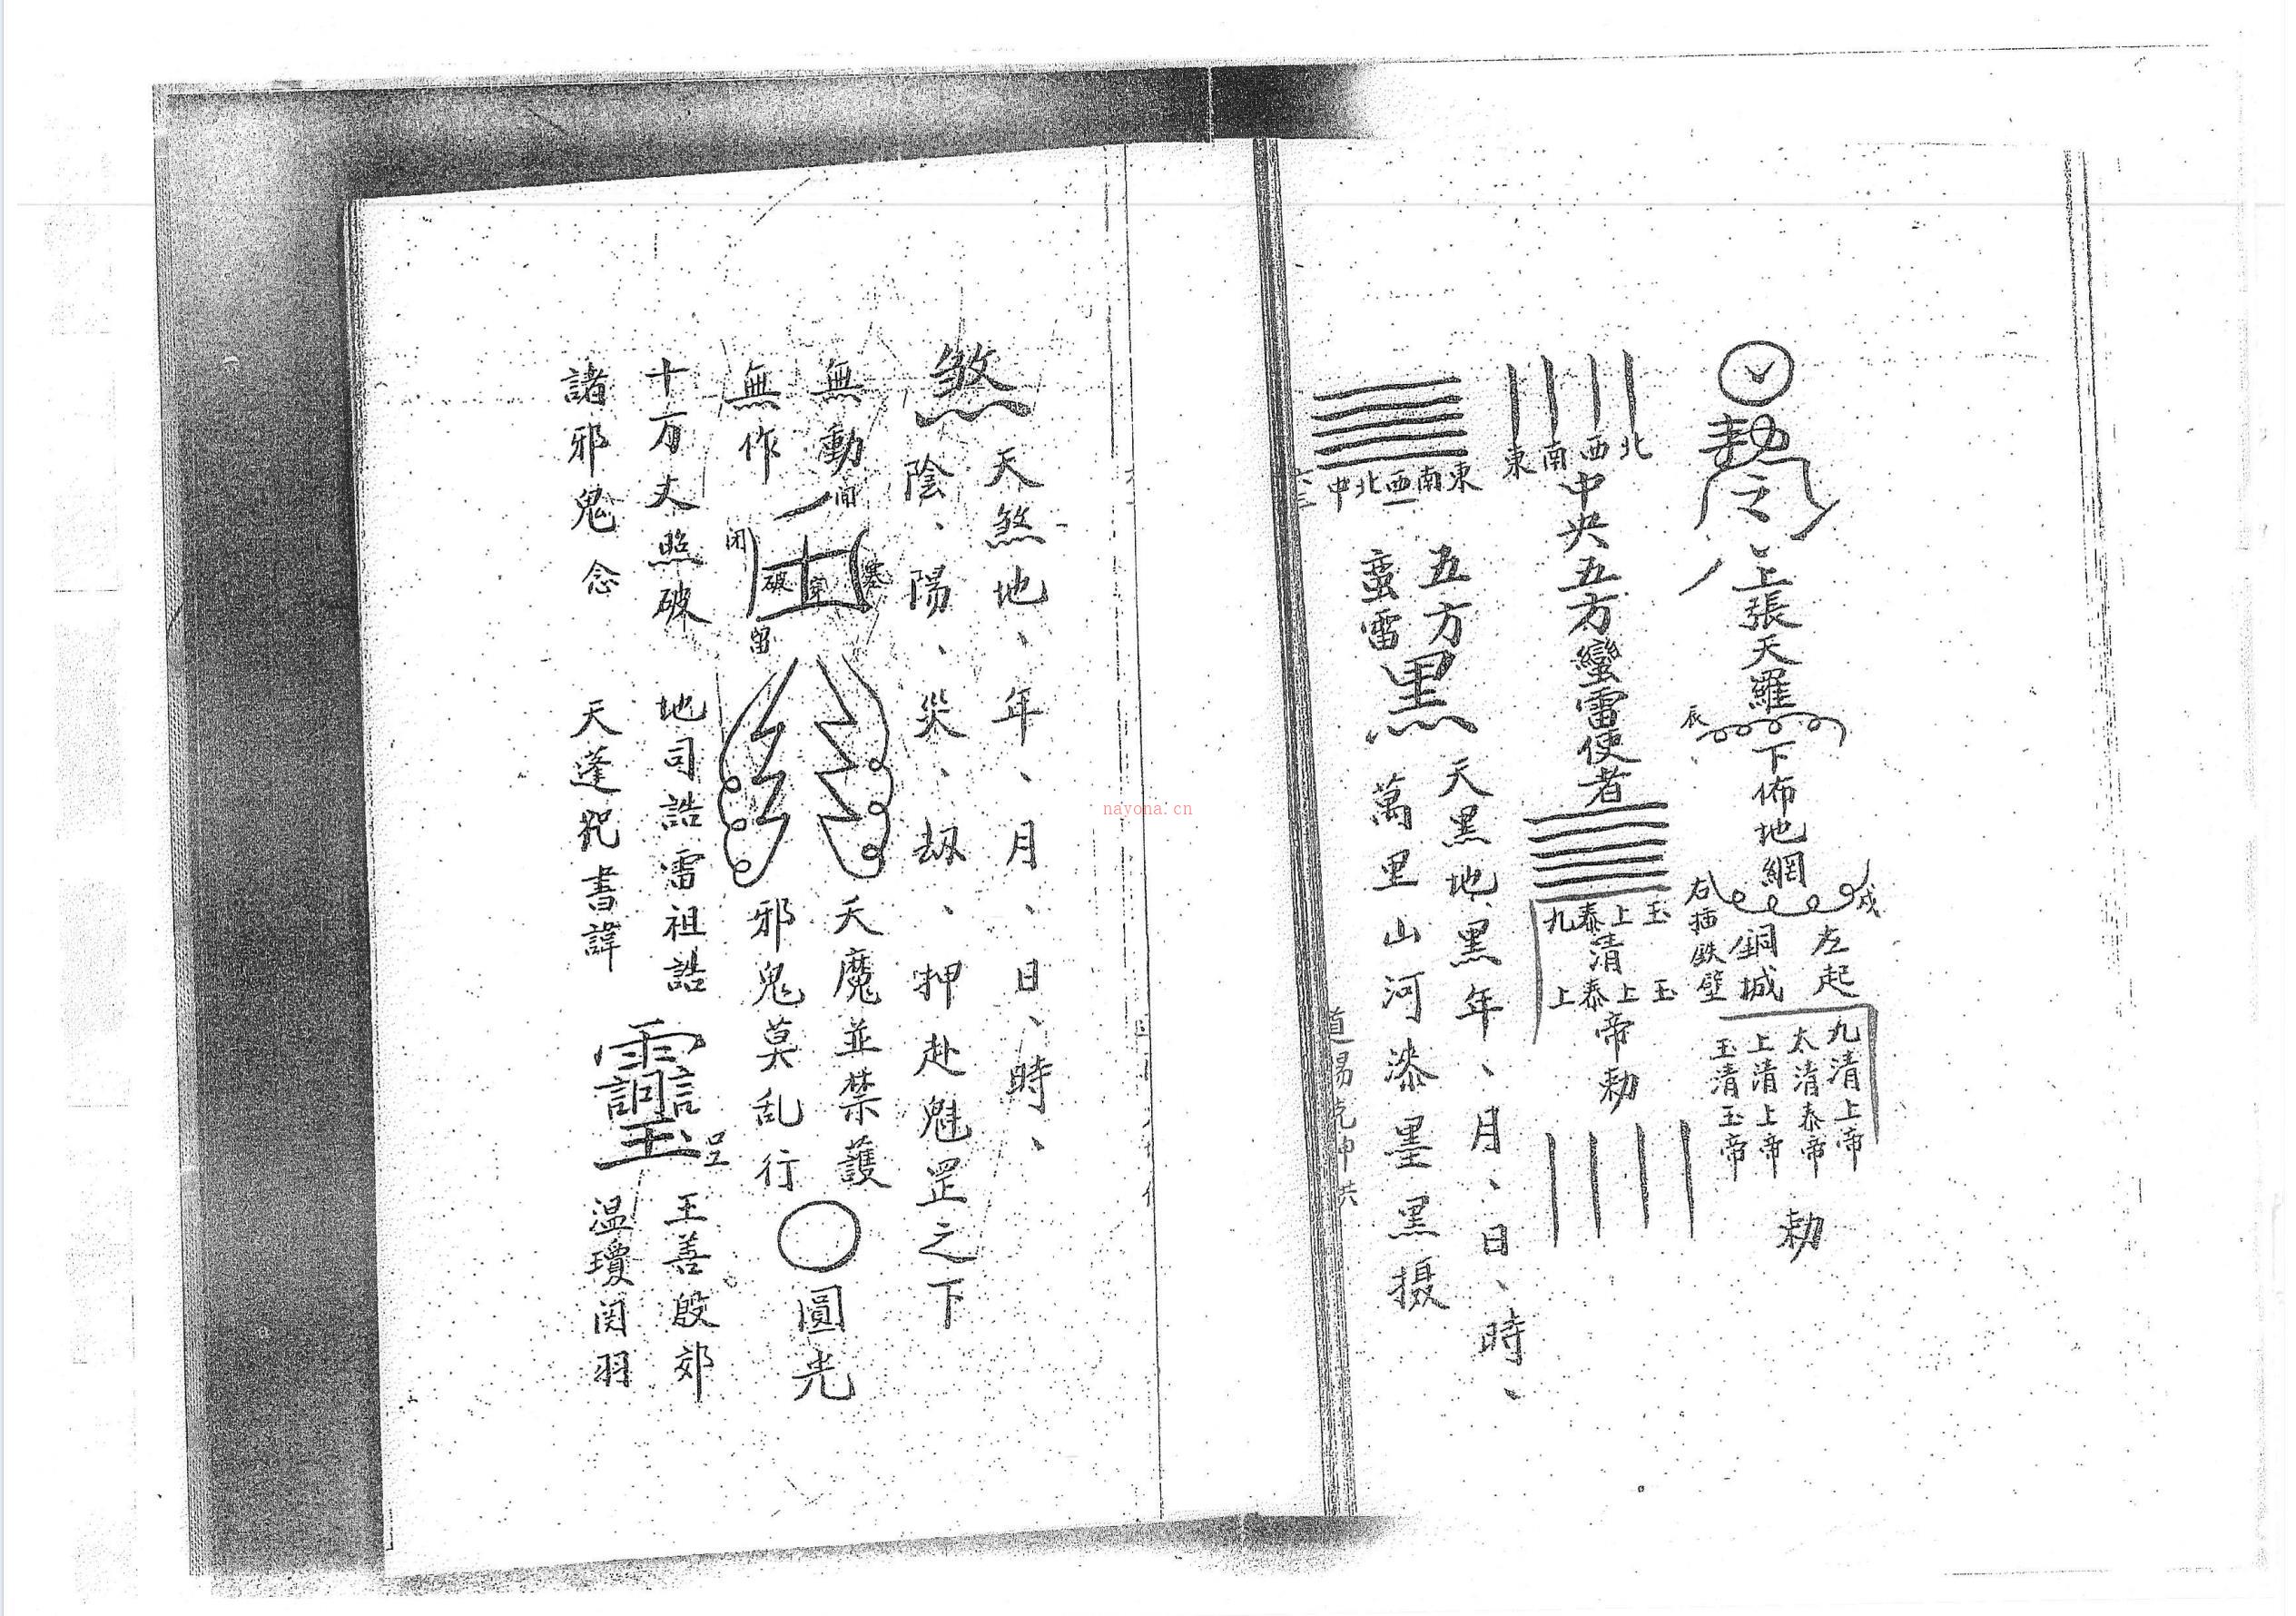 勅令
上張天羅
辰
下佈地網
戌
左起
銅城
右插鉄壁
九清上帝
太清泰帝
上清上帝
玉清玉帝
勅
北
西
南
東
中央五方蠻雷使者
玉上泰九
清
玉上泰上
帝勅
東南西北中
五方
蛮雷
黑
天黑地、黑年、月、日、時、
萬里山河漆墨黑摄
煞
天煞地、年、月、日、時、
陰、陽、災、劫、押赴魁罡之下
無動
無作
閉
破
塞
留
天魔並禁護
邪鬼莫乱行
圓光
十方丈照破
地司誥雷祖誥
王善殷郊
諸邪鬼念
天蓬咒書諱
温瓊関羽
nayona.cn